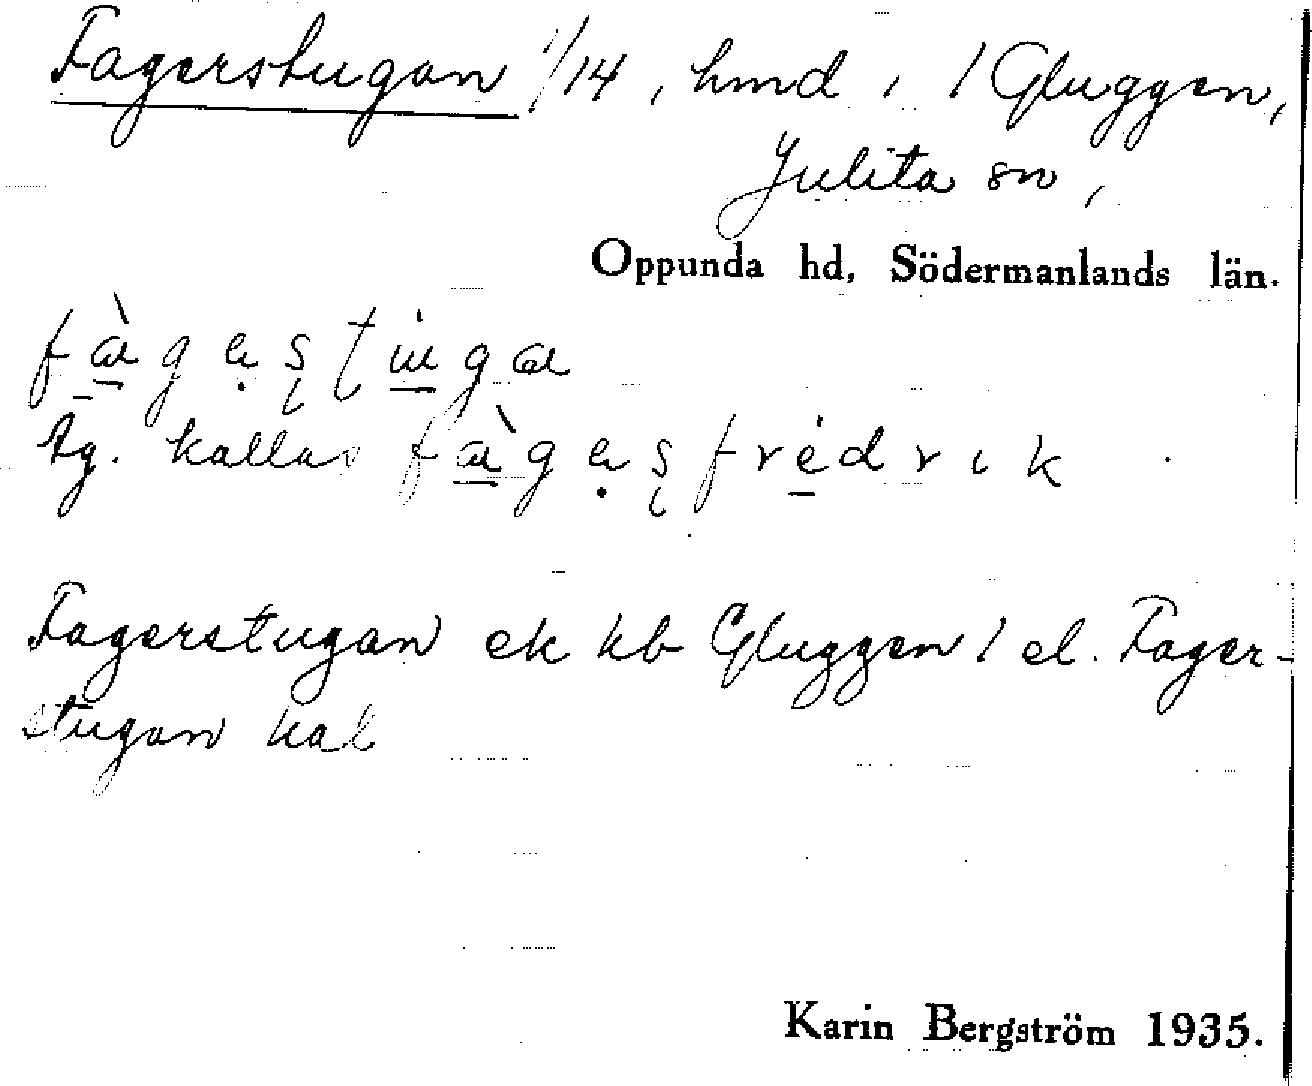 Fagerstugan 1/14, hmd, 1 Gluggen,
Julita sn,
Oppunda hd, Södermanlands län.
fàgeṣtùga
Äg. kallas fàgeṣfrédrik.
Fagerstugan ek kb Gluggen 1 el. Fager-
stugan kal
Karin Bergström 1935.